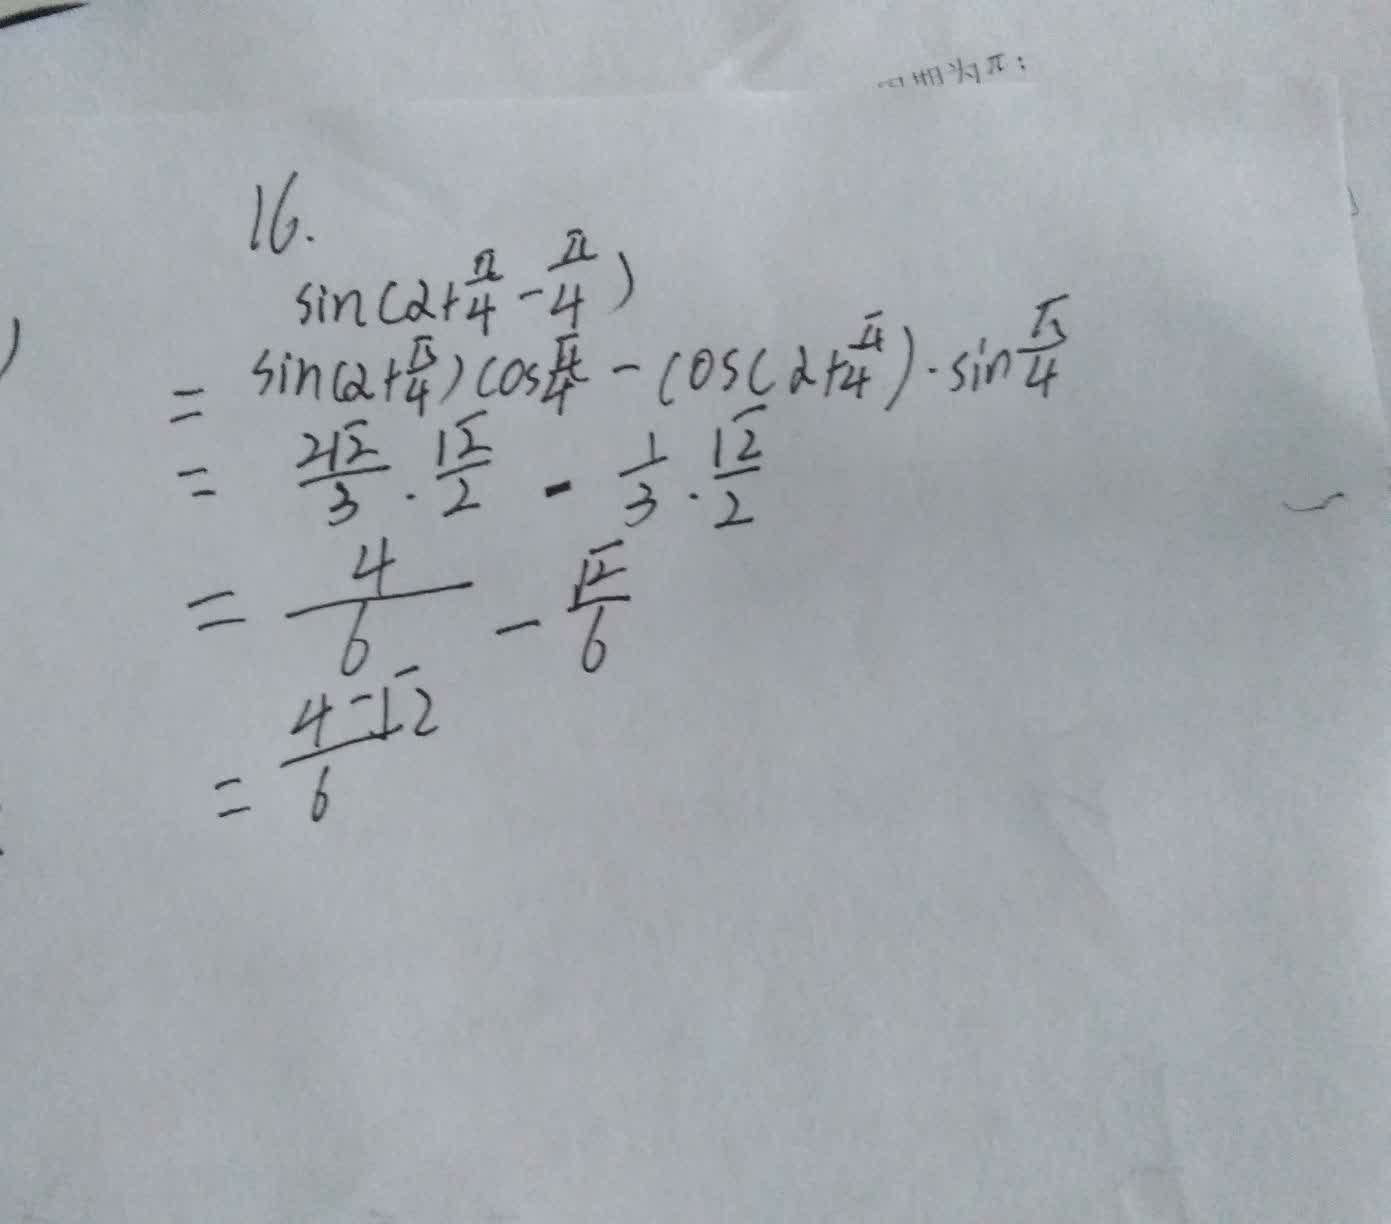 为π；
16.
sin(α+π/4-π/4)
= sin(α+π/4)cosπ/4-cos(α+π/4)·sinπ/4
= 2√2/3·√2/2-1/3·√2/2
= 4/6-√2/6
= 4-√2/6